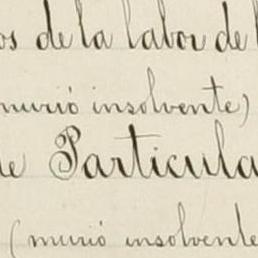 os de la labor de l
murió insolvente)
de Particula
(murió insolvente